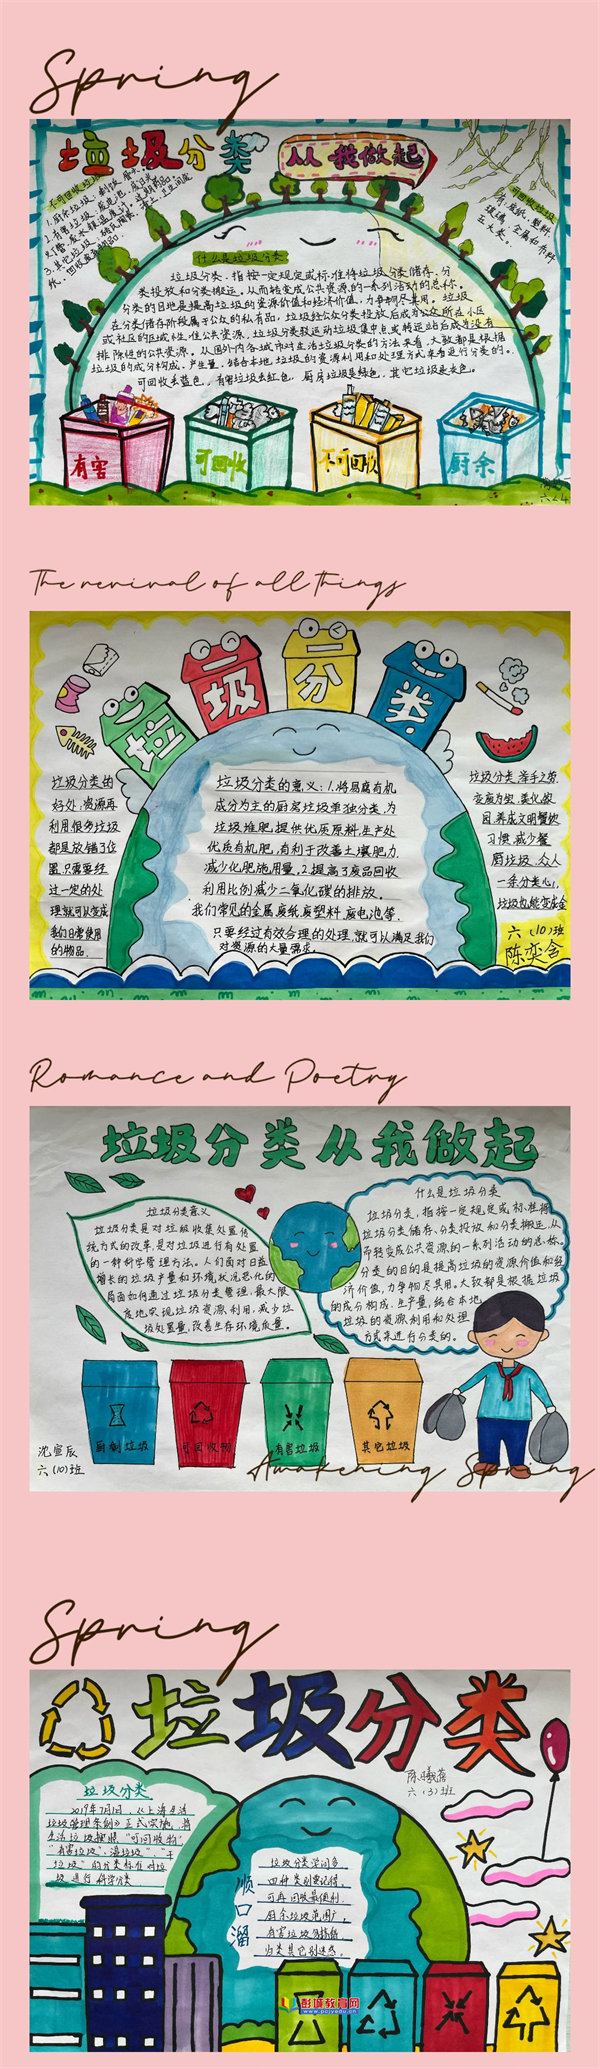 Spring
垃圾分类
从我做起
不可回收垃圾
可回收垃圾
有:废纸,塑料,
玻璃,金属和布料
五大类。
什么是垃圾分类
垃圾分类,指按一定规定或标准将垃圾分类储存、分
类投放和分类搬运,从而转变成公共资源的一系列活动的总称。
分类的目地是提高垃圾的资源价值和经济价值,力争物尽其用。垃圾
在分类储存阶段属于公众的私有品,垃圾经公众分类投放后成为公众所在小区
或社区的区域性准公共资源,垃圾分类驳运动垃圾集中点或转运站后成为没有
排除性的公共资源。从国内外各城市对生活垃圾分类的方法来看,大致都是根据
垃圾的成分构成、产生量,结合本地垃圾的资源利用和处理方式来看进行分类的。
可回收丢蓝色,有害垃圾丢红色,厨房垃圾是绿色,其它垃圾是灰色。
有害
可回收
不可回收
厨余
The revival of all things
垃圾分类
垃圾分类的
好处:资源再
利用很多垃圾
都是放错了位
置,只需要经
过一定的处
理就可以变成
我们日常使用
的物品.
垃圾分类的意义:1.将易腐有机
成分为主的厨房垃圾单独分类,为
垃圾堆肥提供优质原料,生产处
优质有机肥,有利于改善土壤肥力,
减少化肥施用量.2.提高了废品回收
利用比例减少二氧化碳的排放。
我们常见的金属,废纸,废塑料,废电池等,
只要经过有效合理的处理,就可以满足我们
对资源的大量需求。
垃圾分类,举手之劳,
变废为宝,美化家
园,养成文明餐饮
习惯,减少餐
厨垃圾,人人
一条分类心,
垃圾也能变成金
六(10)班
陈奕含
Romance and Poetry
垃圾分类从我做起
垃圾分类意义
垃圾分类是对垃圾收集处置传
统方式的改革,是对垃圾进行有处置
的一种科学管理方法。人们面对日益
增长的垃圾产量和环境状况恶化的
局面如何通过垃圾分类管理,最大限
度地实现垃圾资源利用,减少垃
圾处置量,改善生存环境质量。
什么是垃圾分类
垃圾分类,指按一定规定或标准将
垃圾分类储存、分类投放和分类搬运,从
而转变成公共资源的一系列活动的总称。
分类的目的是提高垃圾的资源价值和经
济价值,力争物尽其用。大致都是根据垃圾
的成分构成、生产量,结合本地
垃圾的资源利用和处理
方式来进行分类的。
厨剩垃圾
可回收物
有害垃圾
其它垃圾
沈宣辰
六(10)班
Awakening Spring
Spring
垃圾分类
陈曦蓓
六(3)班
垃圾分类
2019年7月1日,《上海生活
垃圾管理条例》正式实施,将
生活垃圾按照"可回收物"
"有害垃圾"、湿垃圾"、"干
垃圾"的分类标准对垃
圾进行科学分类
顺口溜
垃圾分类学问多
四种类别要记得
可再回收最便利,
厨余垃圾范围广,
有害垃圾
归类其它别迷惑。
彭城教育网
www.pcjyedu.cn